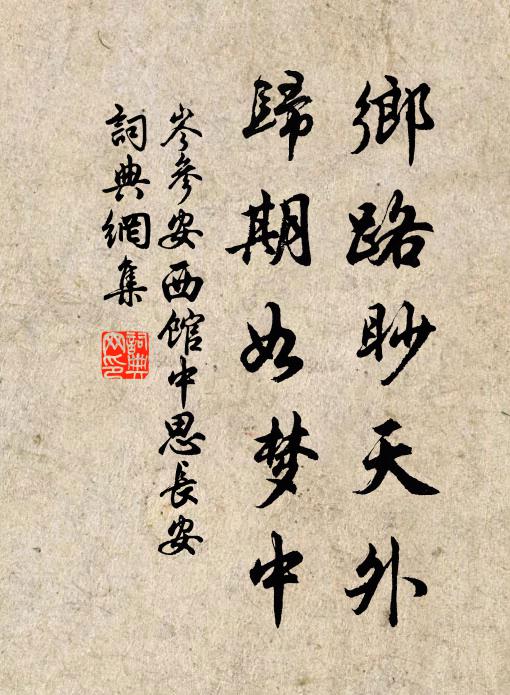 鄉路眇天外
歸期如梦中
岑參安西館中思長安
詞典網集
詞典
网印